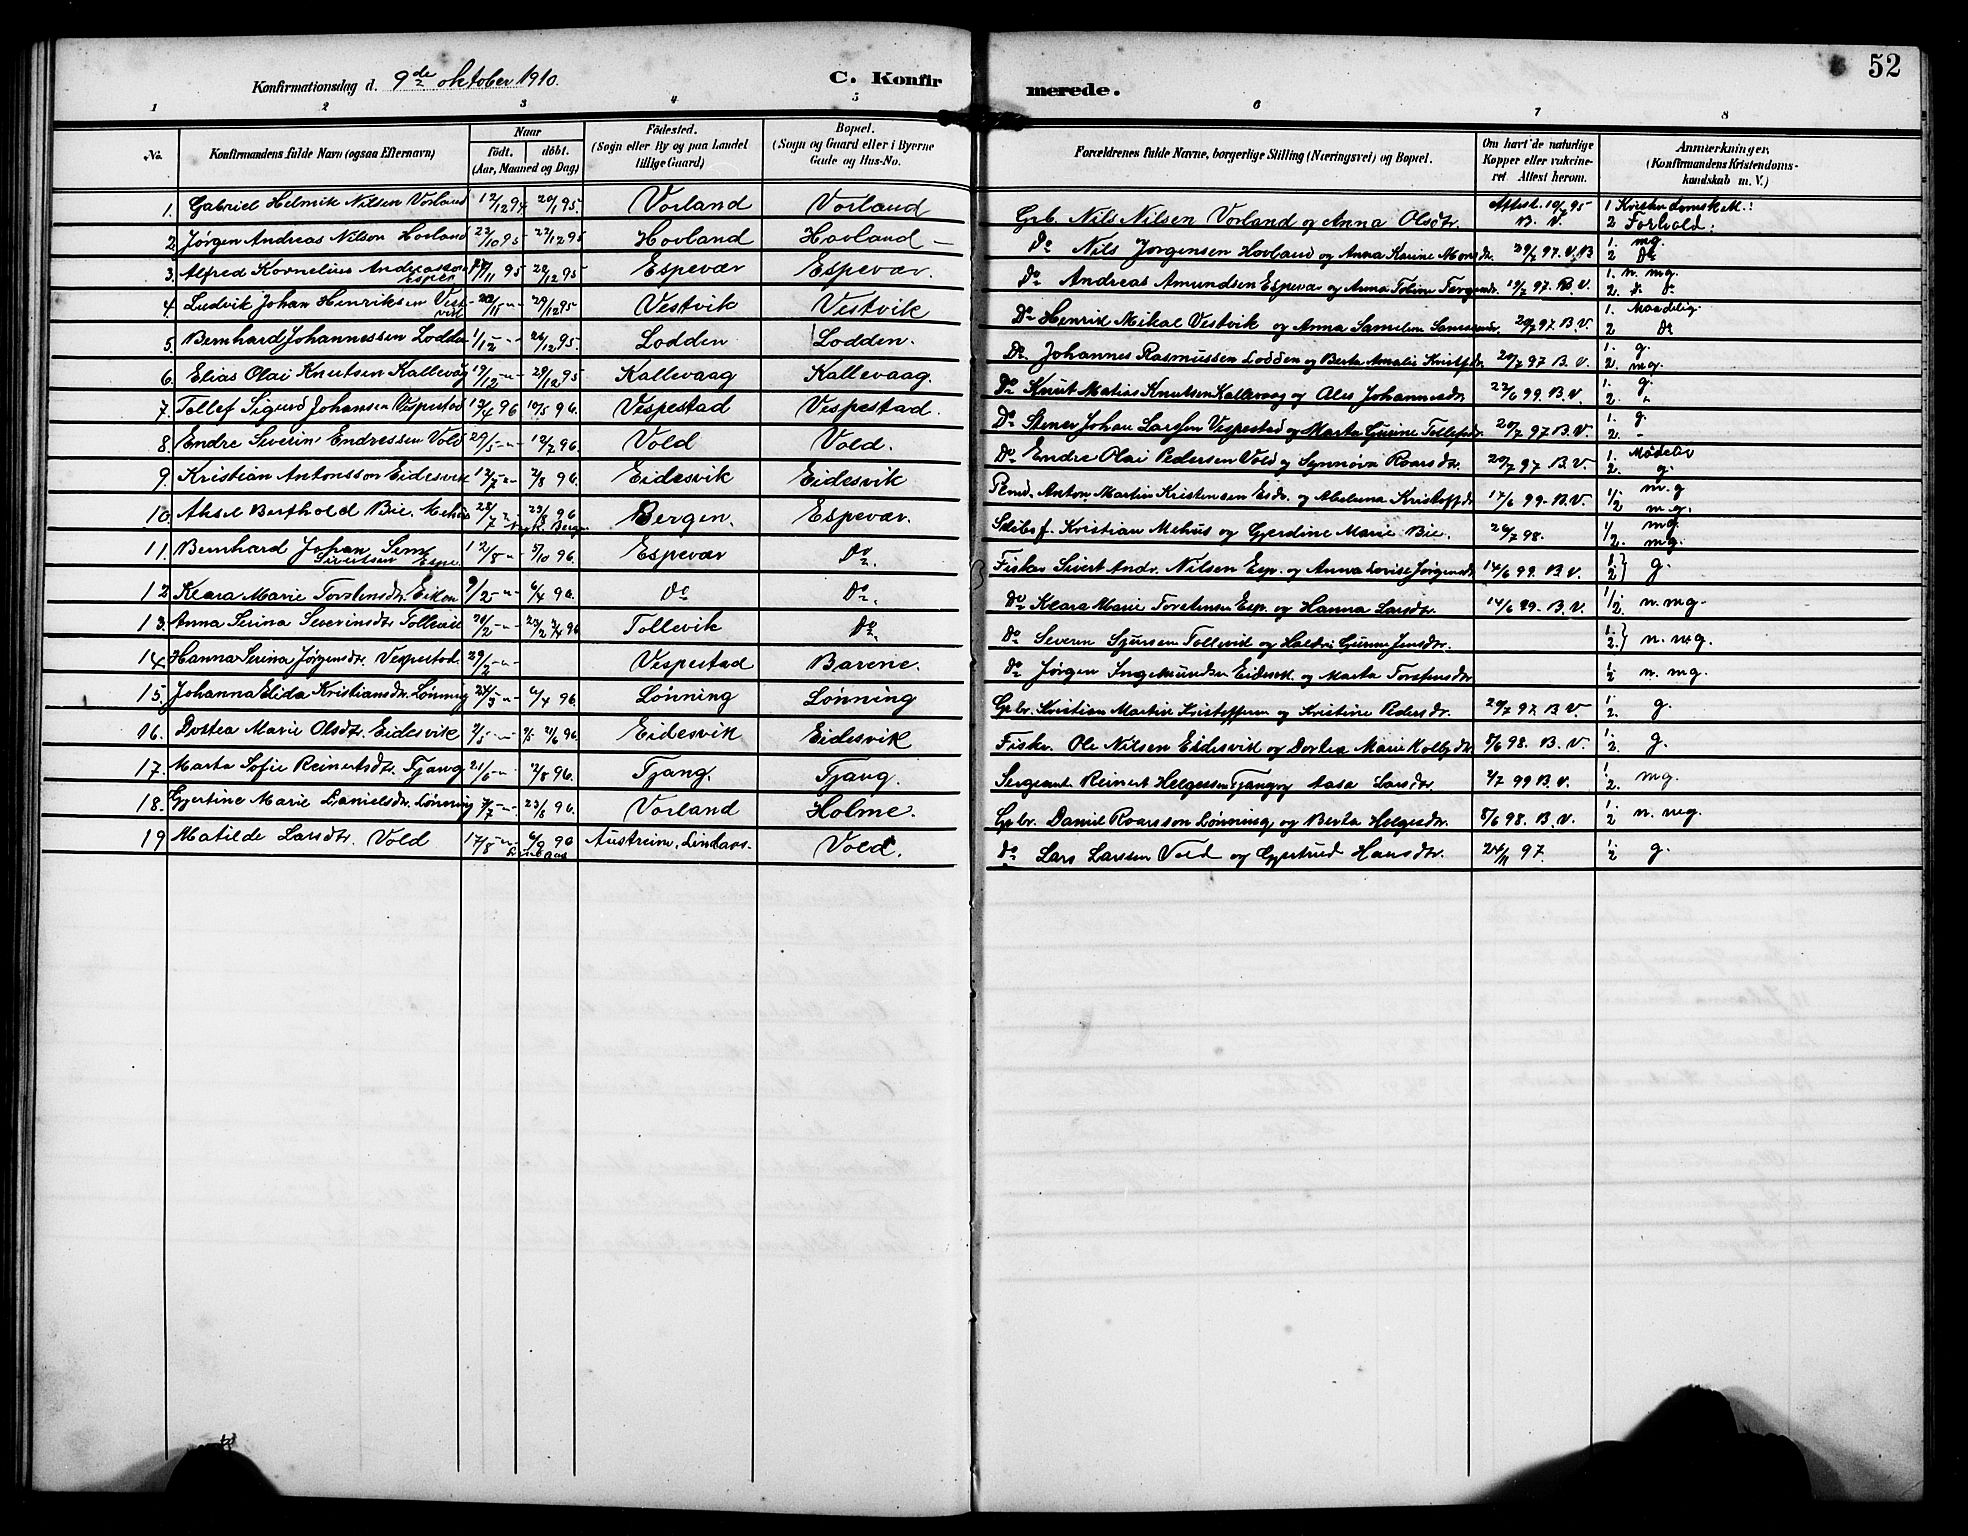 52
Konfirmationsdag d. 9de oktober 1910. C. Konfir merede.
1 2 3 4 5 6 7 8
No. Konfirmandens fulde Navn (ogsaa Efternavn) Naar født. døbt. (Aar, Maaned og Dag) Fødested. (Sogn eller By og paa Landet tillige Gaard) Bopæl. (Sogn og Gaard eller i Byerne Gade og Hus-No. Forældrenes fulde Navne, borgerlige Stilling (Næringsvei) og Bopæl. Om havt de naturlige Kopper eller vakcineret Attest herom. Anmærkninger, (Konfirmandens Kristendomskundskab m. V.)
1. Gabriel Helmik Nilsen Vorland 12/12 94 20/1 95. Vorland Vorland Grb. Nils Nilsen Vorland og Anna Olsdtr. Attest. 10/7 95 B. V. 1 Kristendomskdsk.: 2 Forhold:
2. Jørgen Andreas Nilsen Hovland 23/10 95 22/12 95 Hovland Hovland — Do Nils Jørgensen Hovland og Anna Karine Monsdr. 97. V. B 1. mg. 2 Do
3. Alfred Kornelius Andreassen Espev. /11 95 28/12 95 Espevær Espevær. Do Andreas Amundsen Espevær og Anna Tobine 19/7 97. B. V. 1. n. mg. 2. d. d.
4 Ludvik Johan Henriksen Vestvik 20/11 -"- 29/12 95 Vestvik Vestvik Do Henrik Mikal Vestvik og Anna 20/7 97 B. V. 1. Maadelig 2 Do
5. Bernhard Johannessen Lodden 11/12 -"- 26/12 95. Lodden Lodden. Do Johannes Rasmussen Lodden og Berta Amalie 20/7 97 B. V. 1. g. 2. mg.
6. Elias Olai Knutsen Kallevåg 19/12 -"- 29/12 95 Kallevaag Kallevaag. Do Knut Matias Knutsen Kallevaag og Ales Johannesdr. 22/6 99. B. V. 1. g. 2. "
7. Tollef Sigurd Johansen Vespestad 12/4 96 10/5 96. Vespestad Vespestad. Do Stener Johan Larsen Vespestad og Marta Gurine Tollefsdr. 20/7 97 B. V. 1. g. 2. -
8. Endre Severin Endressen Vold 29/5 -"- 12/7 96. Vold Vold. Do Endre Olai Pedersen Vold og Synnøva Roarsdr. 20/7 97 B. V. 1. Mådeliv 2. g.
9. Kristian Antonsson Eidesvik 12/7 -"- 2/8 96. Eidesvik Eidesvik Anton Martin Kristensen og Abeluna 17/6 99. B. V. 1/2 m. g m. g.
10. Aksel Berthold Bie Mehus 28/7 23/8 96 Berg. Bergen. Espevær. Kristian Mehus og Gjerdine Marie Bie. 26/7 98. 1/2. mg. mg.
11. Bernhard Johan Sivertsen Espe. 12/8 -"- 5/10 96. Espevær Do. Fisker Sivert Andr. Nilsen Esp. og Anna Lovise Jørgensdr. 14/6 99. B. V. 1. 2. } g.
12 Klara Marie Torstensdtr. 9/2 -"- 6/4 96. Do Do. Do Klara Marie Torstensen Esp. og Hanna Larsdtr. 14/6 B. V. 1/2. n. mg.
13. Anna Serina Severinsdtr Tollevik 20/2 -"- 23/2 2/4 96 Tollevik Do. Do Severin Tollevik og Gurine Jensdtr. 1. 2. } n. mg.
14 Hanna Serina Jørgensdtr. Vespestad. 29/2 -"- Vespestad Barene. Do Jørgen Ingemundsen Eidesvk. og Marta Torstensdtr 1/2 n. mg.
15. Johanna Elida Kristiansdtr. Lønning 24/3 -"- 6/4 96. Lønning Lønning Gbr. Kristian Martin og Kristine Pedersdr. 20/7 97. B. V. 1/2. g.
16. Dortea Marie Olsdtr. Eidesvik 2/5 -"- 21/6 96. Eidesvik Eidesvik Fisker Ole Nilsen Eidesvik og Dortea Marie 8/6 98. B. V. 1/2. g.
17. Marta Sofie Reinertsdtr. Tjang 21/6 -"- 2/8 96. Tjang. Tjang. Sergeant Reinert Helgessen Tjang og Aasa Larsdtr. 2/7 99 B. V. 1/2. mg.
18. Gjertine Marie Danielsdtr. Lønning 7/7 -"- 23/8 96. Vorland Holme. Gbr. Daniel Roarsson Lønning og Berta Helgesdtr. 8/6 98. B. V. 1/2 n. mg.
19 Matilde Larsdtr. Vold 17/8 -"- 6/9 96 Lindaas Austreim, Lindaas. Vold. do Lars Larssen Vold og Gjertrud Hansdtr. 24/11 97. 1/2 g.